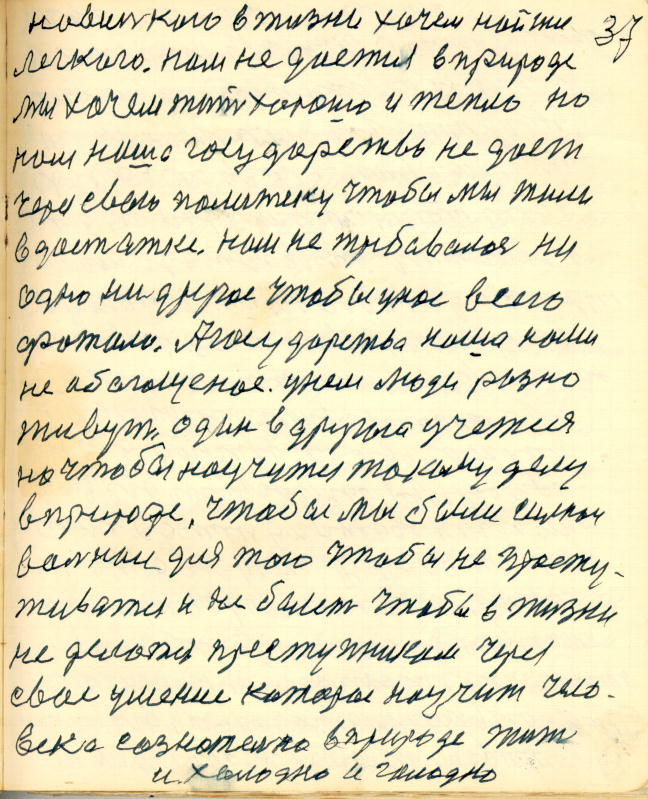 37
новенького в жизни хочем найти
легкого. нам не дается в природе
мы хочем жить хорошо и тепло но
нам наша государства не дает
через свою политику чтобы мы жили
в достатке. нам не требавалоя ни
одно ни другое чтобы унас всего
хватало. А государства наша нами
не абагощеное. унем люди разно
живут. один в другога учатся
но чтобы научится такому делу
в природе, чтобы мы были
для того чтобы не просту-
живатся и не болет чтобы в жизни
не делатся преступником через
свое умение каторое научит чело-
века сознателно в природе жит
и холодно и голодно